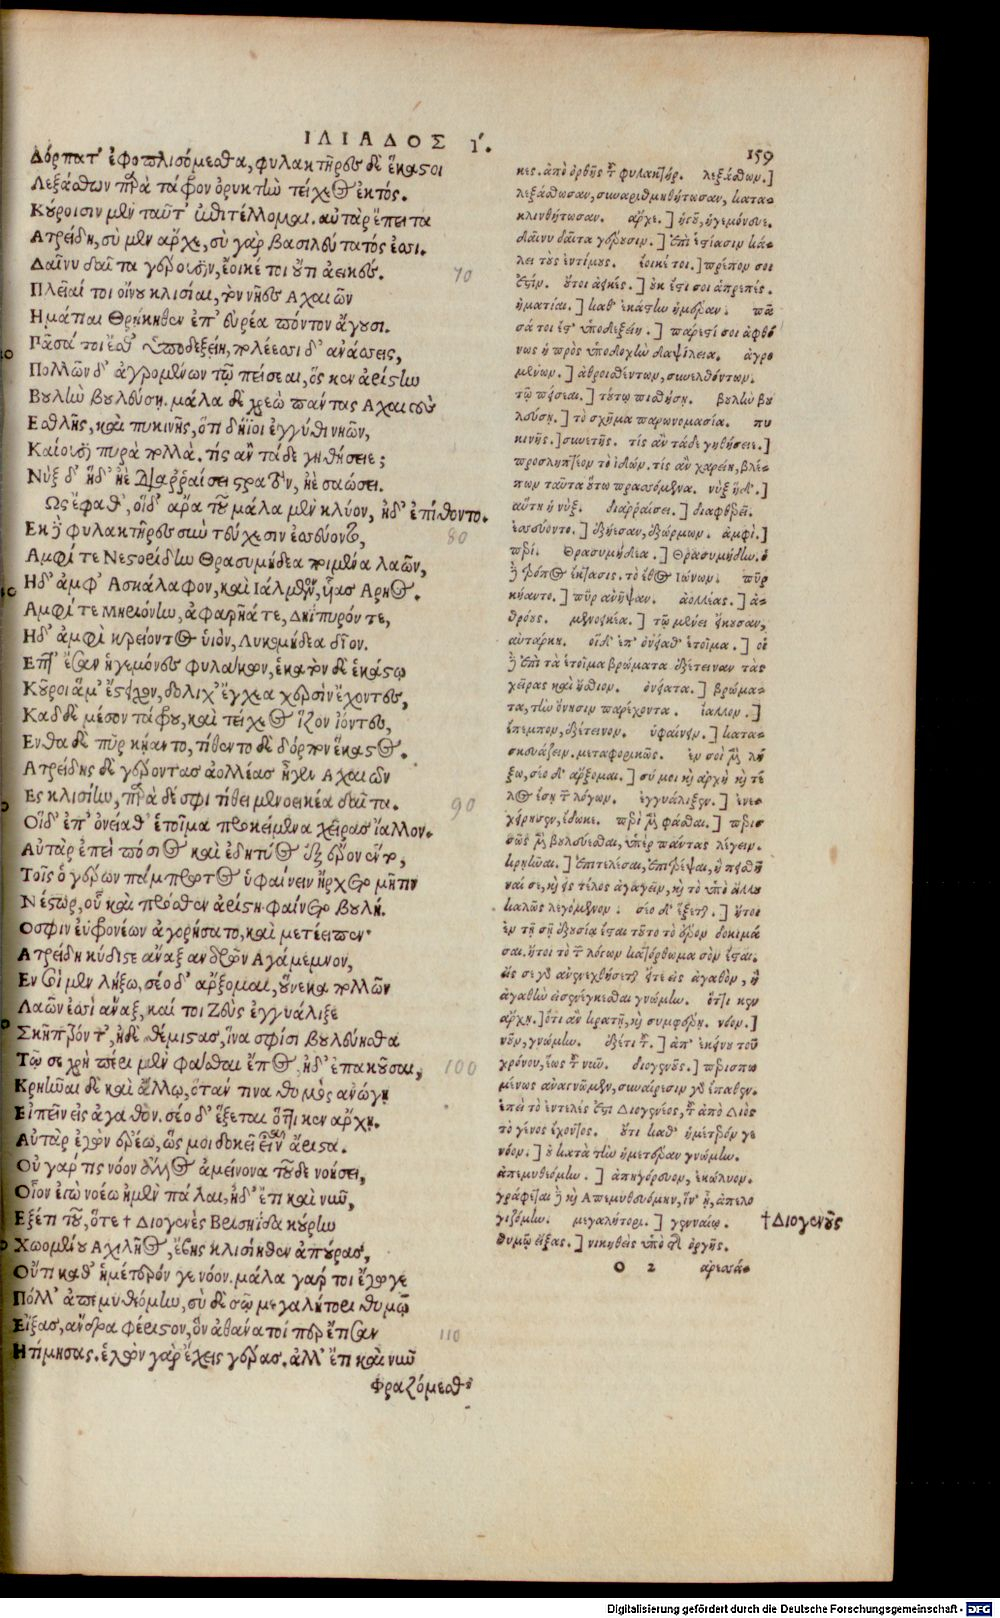 ΙΛΙΑΔΟΣ Ι΄.
159
Δόρπατ' ἐφοπλισόμεσθα, φυλακτῆρες δὲ ἕκαστοι
Λεξάσθων παρὰ τάφρον ὀρυκτὴν τείχεος ἐκτός.
Κούροισιν μὲν ταῦτ' ἐπιτέλλομαι. αὐτὰρ ἔπειτα
Ατρείδη, σὺ μὲν ἄρχε, σὺ γὰρ βασιλεύτατός ἐσσι.
Δαίνυ δαῖτα γέρουσιν, ἔοικέ τοι οὔτι ἀεικές.
70
Πλεῖαί τοι οἴνου κλισίαι, τὸν νῆες Αχαιῶν
Ημάτιαι Θρῄκηθεν ἐπ' εὐρέα πόντον ἄγουσι.
Πᾶσά τοι ἔσθ' ὑποδεξίη, πολέεσσι δ' ἀνάσσεις,
Πολλῶν δ' ἀγρομένων τῷ πείσεαι, ὅς κεν ἀρίστην
Βουλὴν βουλεύσῃ. μάλα δὲ χρεὼ πάντας Αχαιοὺς
Εσθλῆς, καὶ πυκινῆς, ὅτι δήϊοι ἐγγύθι νηῶν,
Καίουσιν πυρὰ πολλὰ. τίς ἂν τάδε γηθήσειε;
Νὺξ δ' ἥδ' ἠὲ διαῤῥαίσει στρατὸν, ἠὲ σαώσει.
Ως ἔφαθ', οἱ δ' ἄρα τοῦ μάλα μὲν κλύον, ἠδ' ἐπίθοντο.
Εκ δὲ φυλακτῆρες σὺν τεύχεσιν ἐσσεύοντο,
80
Αμφί τε Νεστορίδην Θρασυμήδεα ποιμένα λαῶν,
Ηδ' ἀμφ' Ασκάλαφον, καὶ Ιάλμενον, υἷας Αρηος.
Αμφί τε Μηριόνην, ἀφαρῆά τε, Δηΐπυρόν τε,
Ηδ' ἀμφὶ κρείοντος υἱὸν, Λυκομήδεα δῖον.
Επτ' ἔσαν ἡγεμόνες φυλάκων, ἑκατὸν δὲ ἑκάστῳ
Κοῦροι ἅμ' ἔστιχον, δολίχ' ἔγχεα χερσὶν ἔχοντες,
Καδδὲ μέσον τάφρου, καὶ τείχεος ἷζον ἰόντες,
Ενθα δὲ πῦρ κῄαντο, τίθεντο δὲ δόρπον ἕκαστος.
Ατρείδης δὲ γέροντας ἀολλέας ἦγεν Αχαιῶν
Ες κλισίην, παρὰ δέ σφι τίθει μενοεικέα δαῖτα.
90
Οἱ δ' ἐπ' ὀνείαθ' ἑτοῖμα προκείμενα χεῖρας ἴαλλον.
Αὐτὰρ ἐπεὶ πόσιος καὶ ἐδητύος ἐξ ἔρον ἕντο,
Τοῖς ὁ γέρων πάμπρωτος ὑφαίνειν ἤρχετο μῆτιν
Νέστωρ, οὗ καὶ πρόσθεν ἀρίστη φαίνετο βουλή.
Ο σφιν ἐϋφρονέων ἀγορήσατο, καὶ μετέειπεν·
Ατρείδη κύδιστε ἄναξ ἀνδρῶν Αγάμεμνον,
Εν σοὶ μὲν λήξω, σέο δ' ἄρξομαι, οὕνεκα πολλῶν
Λαῶν ἐσσὶ ἄναξ, καί τοι Ζεὺς ἐγγυάλιξε
Σκῆπτρόν τ', ἠδὲ θέμιστας, ἵνα σφίσι βουλεύησθα
Τῷ σε χρὴ πέρι μὲν φάσθαι ἔπος, ἠδ' ἐπακοῦσαι,
100
Κρηῆναι δὲ καὶ ἄλλῳ, ὅταν τινα θυμὸς ἀνώγῃ
Εἰπεῖν εἰς ἀγαθὸν. σέο δ' ἕξεται ὅττι κεν ἄρχῃ.
Αὐτὰρ ἐγὼν ἐρέω, ὥς μοι δοκεῖ εἶναι ἄριστα.
Οὐ γάρ τις νόον ἄλλος ἀμείνονα τοῦδε νοήσει,
Οἷον ἐγὼ νοέω ἠμὲν πάλαι, ἠδ' ἔτι καὶ νῦν,
Εξέτι τοῦ, ὅτε † Διογενὲς Βρισηΐδα κούρην
Χωομένου Αχιλῆος, ἔβης κλισίηθεν ἀπούρας,
Οὔτι καθ' ἡμέτερόν γε νόον. μάλα γάρ τοι ἔγωγε
Πόλλ' ἀπεμυθεόμην, σὺ δὲ σῷ μεγαλήτορι θυμῷ
Εἴξας, ἄνδρα φέριστον, ὃν ἀθάνατοί περ ἔτισαν
110
Ητίμησας. ἑλὼν γὰρ ἔχεις γέρας. ἀλλ' ἔτι καὶ νῦν
Φραζόμεσθ'
κες. ἀπὸ ὀρθῆς τῶν φυλακτήρ. λεξάσθων.]
λεξάσθωσαν, συναριθμηθήτωσαν, κατα-
κλινθήτωσαν. ἄρχε.] ἡγοῦ, ἡγεμόνευε.
δαίνυ δαῖτα γέρουσιν.] ἐπὶ ἑστίασιν κά-
λει τοὺς ἐντίμους. ἔοικέ τοι.] πρέπον σοι
ἐστίν. οὔτοι ἀεικές.] οὐκ ἔστι σοι ἀπρεπές.
ἡμάτιαι.] καθ' ἑκάστην ἡμέραν. πᾶ
σά τοι ἔσθ' ὑποδεξίη.] πάρεστί σοι ἀφθό
νως ἡ πρὸς ὑποδοχὴν δαψίλεια. ἀγρο
μένων.] ἀθροισθέντων, συνελθόντων.
τῷ πείσεαι.] τούτῳ πεισθήσῃ. βουλὴν βου
λεύσῃ.] τὸ σχῆμα παρωνομασία. πυ
κινῆς.] συνετῆς. τίς ἂν τάδε γηθήσειε.]
προσληπτέον τὸ ἰδών. τίς ἂν χαρείη, βλέ-
πων ταῦτα οὕτω πρασσόμενα. νὺξ ἥδ'.]
αὕτη ἡ νύξ. διαρραίσει.] διαφθερεῖ.
ἐσσεύοντο.] ἐξῄεσαν, ἐξώρμων. ἀμφὶ.]
περί. Θρασυμήδεα.] Θρασυμήδην. ὁ
δὲ τρόπος ἔκτασις. τὸ ἔθος Ιώνων. πῦρ
κήαντο.] πῦρ ἀνῆψαν. ἀολλέας.] ἀ-
θρόους. μενοεικέα.] τῷ μένει εἴκουσαν,
αὐτάρκη. οἱ δ' ἐπ' ὀνείαθ' ἑτοῖμα.] οἱ
δὲ ἐπὶ τὰ ἕτοιμα βρώματα ἐξέτειναν τὰς
χεῖρας καὶ ἤσθιον. ὀνείατα.] βρώμα-
τα, τὴν ὄνησιν παρέχοντα. ἴαλλον.]
ἔπεμπον, ἐξέτεινον. ὑφαίνειν.] κατα-
σκευάζειν. μεταφορικῶς. ἐν σοὶ μὲν λή
ξω, σέο δ' ἄρξομαι.] σύ μοι καὶ ἀρχὴ καὶ τέ
λος ἔσῃ τῶν λόγων. ἐγγυάλιξεν.] ἐνε-
χείρισεν, ἔδωκε. περὶ μὲν φάσθαι.] περισ
σῶς μὲν βουλεύεσθαι, ὑπὲρ πάντας λέγειν.
κρηῆναι.] ἐπιτελέσαι, ἐπιτρέψαι, ἢ πεισθῆ
ναί σε, καὶ εἰς τέλος ἀγαγεῖν, καὶ τὸ ὑπὸ ἄλλου
καλῶς λεγόμενον. σέο δ' ἕξεται.] ἤτοι
ἐν τῇ σῇ ἐξουσίᾳ ἔσται τοῦτο τὸ ἔργον δοκιμά
σαι. ἤτοι τὸ τῶν λόγων κατόρθωμα σὸν ἔσται.
εἴς σε γὰρ ἀνενεχθήσεται εἴτε εἰς ἀγαθὸν, ἢ
ἀγαθὴν εἰσενέγκεσθαι γνώμην. ὅττι κεν
ἄρχῃ.] ὅτι ἂν κρατῇ, καὶ συμφέρῃ. νόον.]
νοῦν, γνώμην. ἐξέτι τοῦ.] ἀπ' ἐκείνου τοῦ
χρόνου, ἕως τοῦ νῦν. διογενοῦς.] περισπω
μένως ἀναγνῶμεν, συναίρεσιν γὰρ ἔπαθεν.
ἐπεὶ τὸ ἐντελές ἐστι Διογενέος, τοῦ ἀπὸ Διὸς
τὸ γένος ἔχοντος. οὔτι καθ' ἡμέτερόν γε
νόον.] οὐ κατὰ τὴν ἡμετέραν γνώμην.
ἀπεμυθεόμην.] ἀπηγόρευον, ἐκώλυον.
γράφεται δὲ καὶ Απεμυθευόμην, ἵν' ᾖ, ἀπελο
γιζόμην. μεγαλήτορι.] γενναίῳ.
θυμῷ εἴξας.] νικηθεὶς ὑπὸ τῆς ὀργῆς.
† Διογενοῦς
O 2
ἀρεσά-
Digitalisierung gefördert durch die Deutsche Forschungsgemeinschaft - DFG